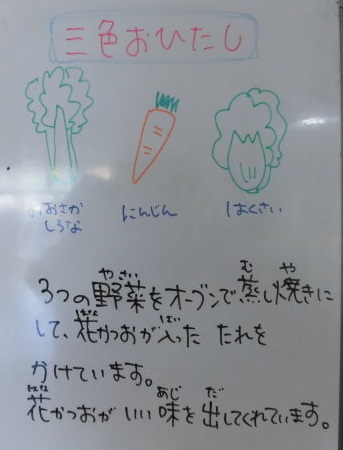 三色おひたし
おおさか
しろな
にんじん
はくさい
やさい む や
3つの野菜をオーブンで蒸し焼きに
はな はい
して、花かつおが入った たれを
かけています。
はな あじ だ
花かつおがいい味を出してくれています。